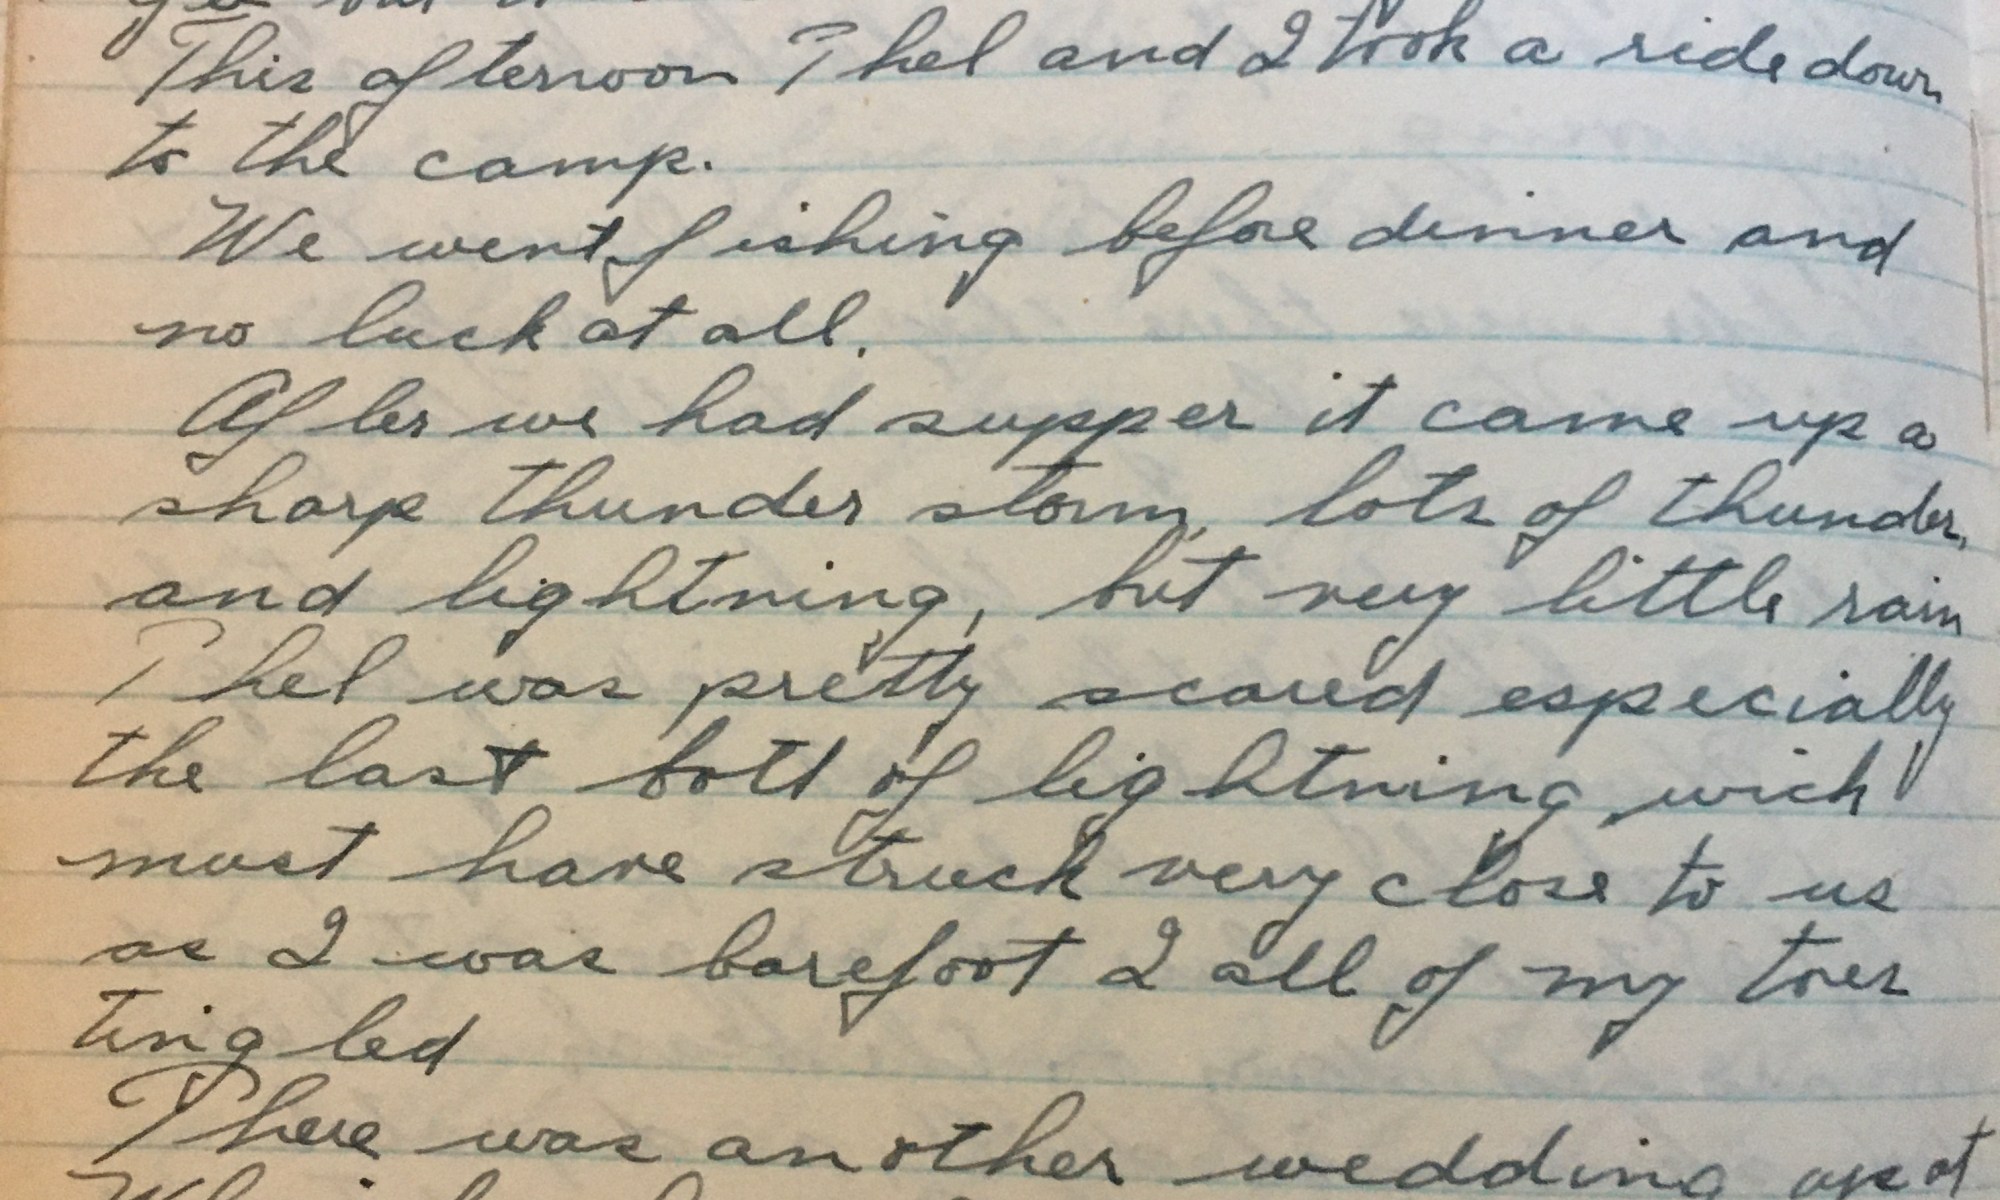 This afternoon Thel and I took a ride down
to the camp.
We went fishing before dinner and
no luck at all.
After we had supper it came up a
sharp thunder storm, lots of thunder,
and lightning, but very little rain
Thel was pretty scared especially
the last bolt of lightning wich
must have struck very close to us
as I was barefoot I all of my toes
tingled
There was another wedding up at